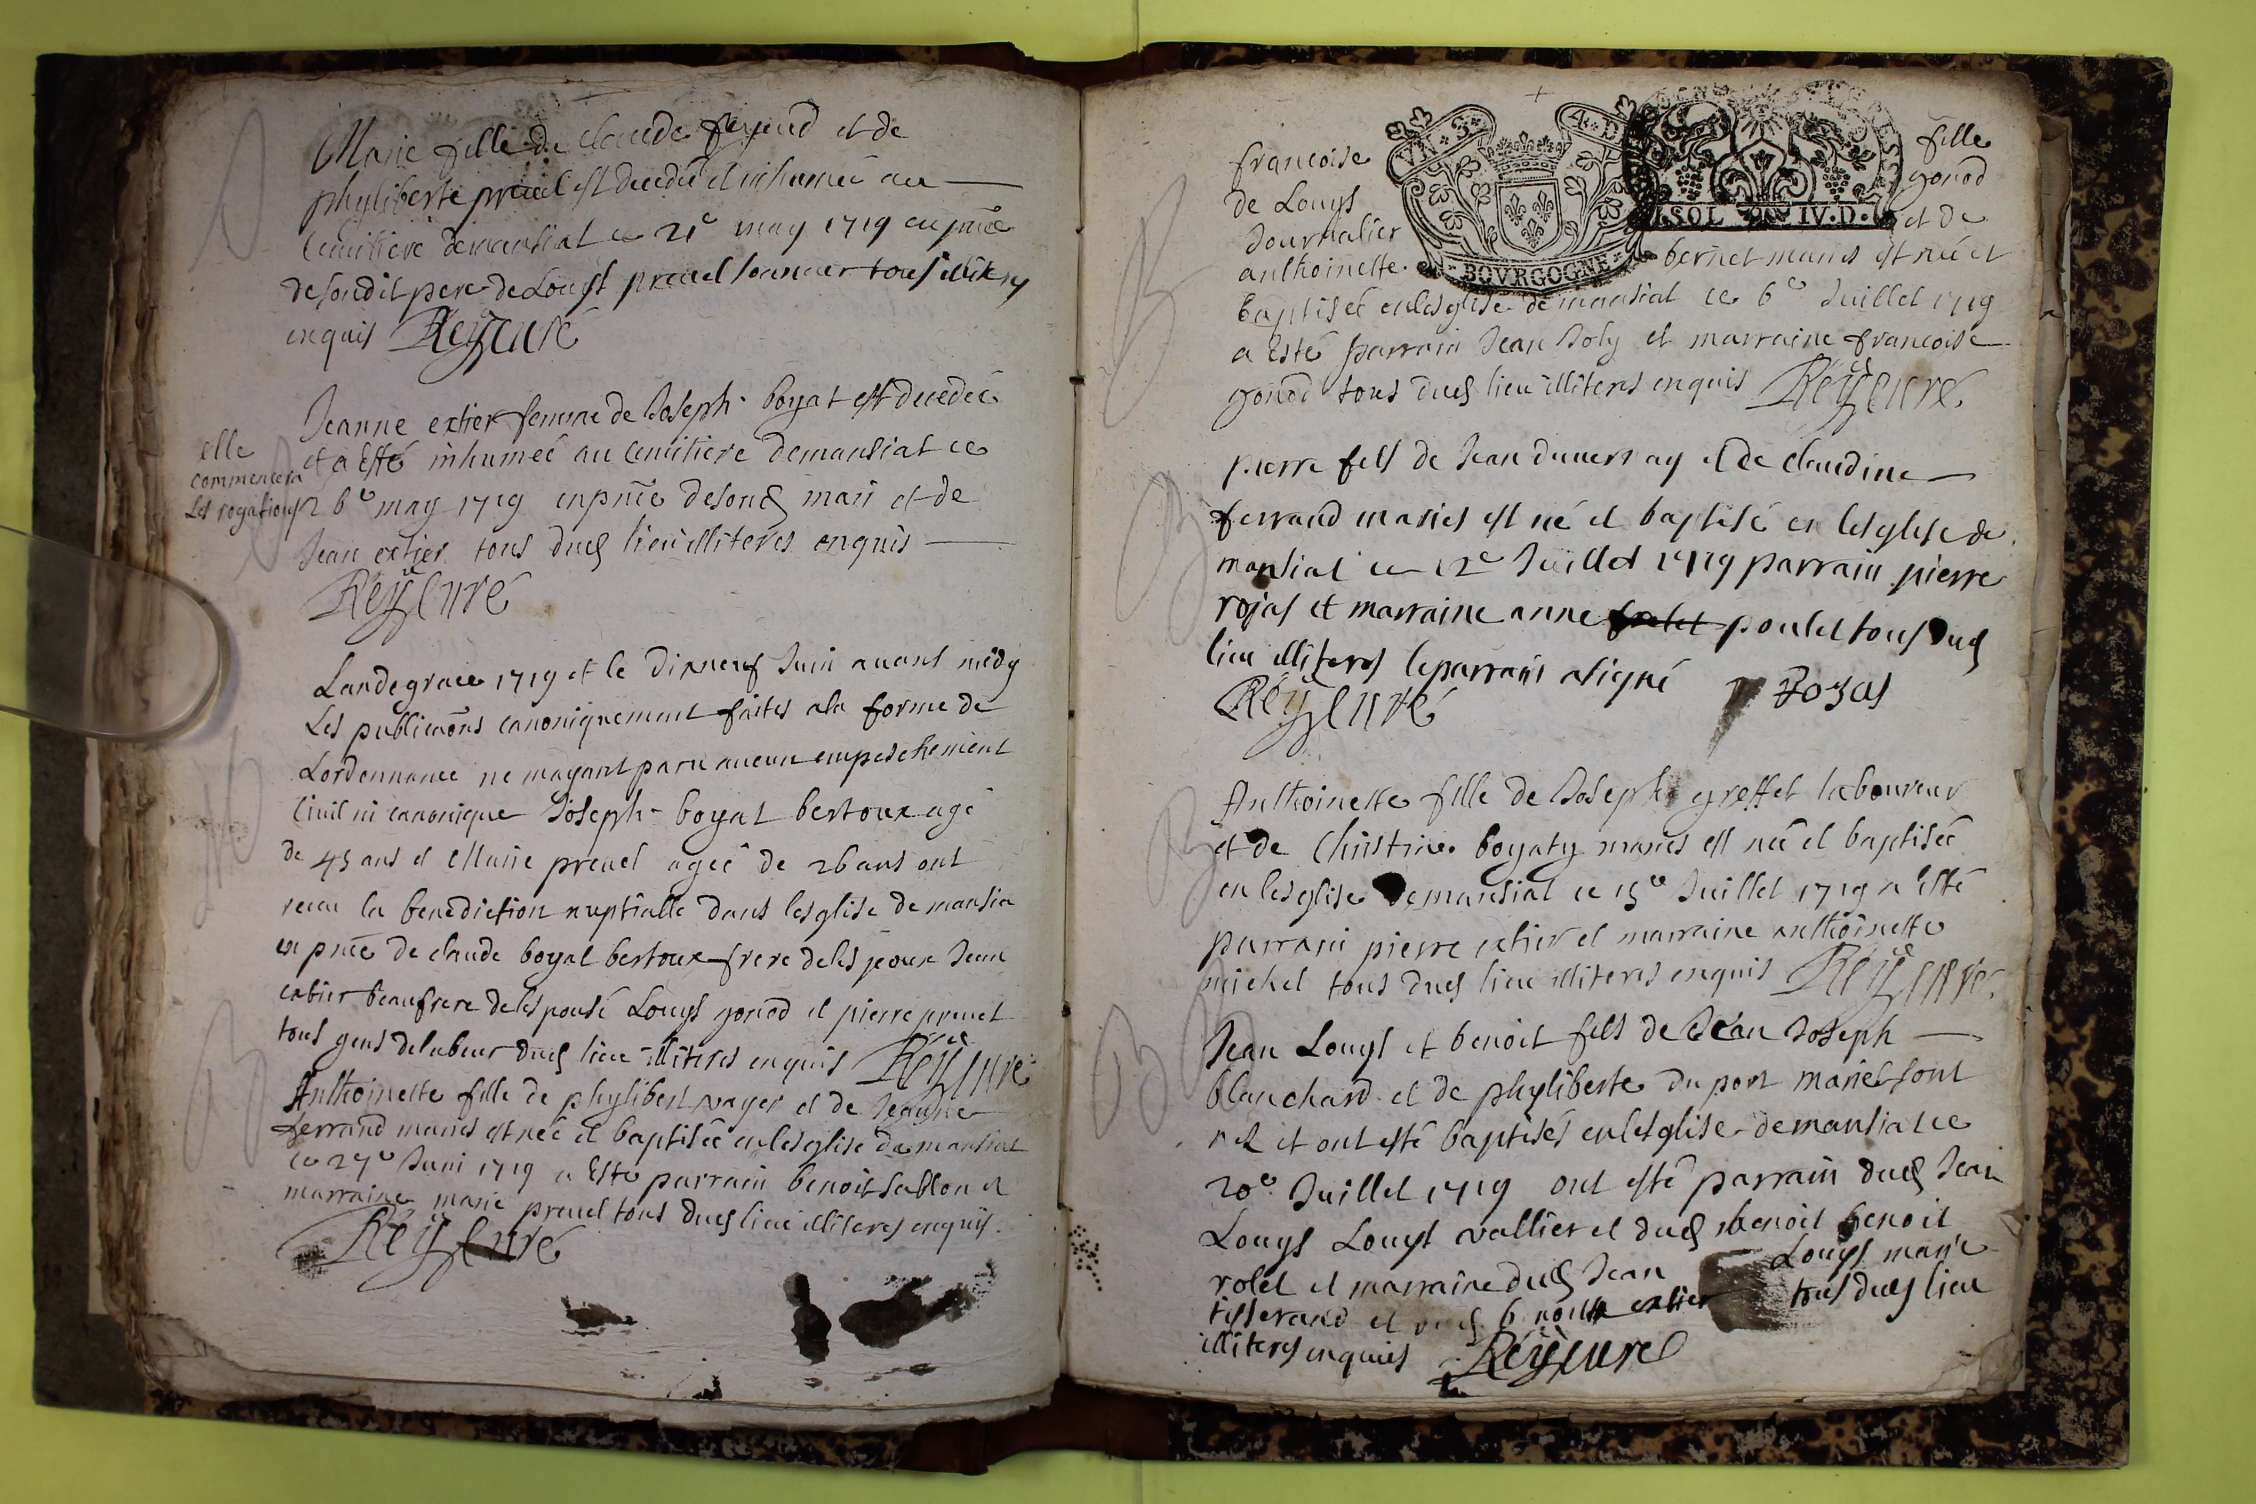 Marie fille de claude ferrand et de
phyliberte preuel est decedeé et inhumeé au
Cemitiere demansiat ce 21e may 1719 en pnce
desondit pere de Louys preuel sonneur tous illiteres
enquis Réÿ curé
Jeanne extier femme de Joseph boyat est decedeé
et a esté inhumeé au Cemitiere demansiat ce
26e may 1719 enpnce desond mari et de
Jean extier tous dud lieu illiteres enquis
Réÿ curé
elle
commencera
les rogations
Landegrace 1719 et le dixneuf Juin auant midy
Les publicaons canoniquement faites ala forme de
Lordonnance ne mayant paru aucun empeschement
Ciuil ni canonique Joseph boyat bertoux agé
de 45 ans et Marie preuel ageé de 26 ans ont
receu la benediction nuptialle dans lesglise de mansia
en pnce de claude boyat bertoux frere delespoux Jean
extier beaufrere delespousé Louys gonod et pierre preuel
tous gens delabeur dud lieu illiteres enquis Réÿ curé
Anthoinette fille de phylibert vayer et de Jeanne
ferrand mariés est neé et baptiseé en lesglise de mansiat
ce 27e Juin 1719 a esté parrain benoit sablon et
marraine marie preuel tous dud lieu illiteres enquis.
Réÿ curé
VN·S· 4·D
BOVRGOGNE
SOL IV·D·
francoise fille
de Louys gonod
Journalier et de
anthoinette bernet mariés est neé et
baptiseé en lesglise demansiat ce 6e Juillet 1719
a esté parrain Jean Joly et marraine francoise
gonod tous dud lieu illiteres enquis Réÿ curé
pierre fils de Jean duuernay et de claudine
ferrand mariés est né et baptisé en lesglise de
mansiat ce 12e Juillet 1719 parrain pierre
rojas et marraine anne poulet tous dud
lieu illiteres leparrain asigné Rozas
Réÿ curé
Anthoinette fille de Joseph greffet laboureur
et de Christine boyaty mariés est neé et baptiseé
en lesglise demansiat ce 15e Juillet 1719 a esté
parrain pierre extier et marraine anthoinette
michel tous dud lieu illiteres enquis Réÿ curé
Jean Louys et benoit fils de Jean Joseph
blanchard et de phyliberte du port mariés sont
nés et ont esté baptisés en lesglise demansiat ce
20e Juillet 1719 ont esté parrain dud Jean
Louys Louys vallier et dud benoit benoit
rolet et marraine dud Jean Louys marie
tisserand et dud extier tous dud lieu
illiteres enquis Réÿ curé